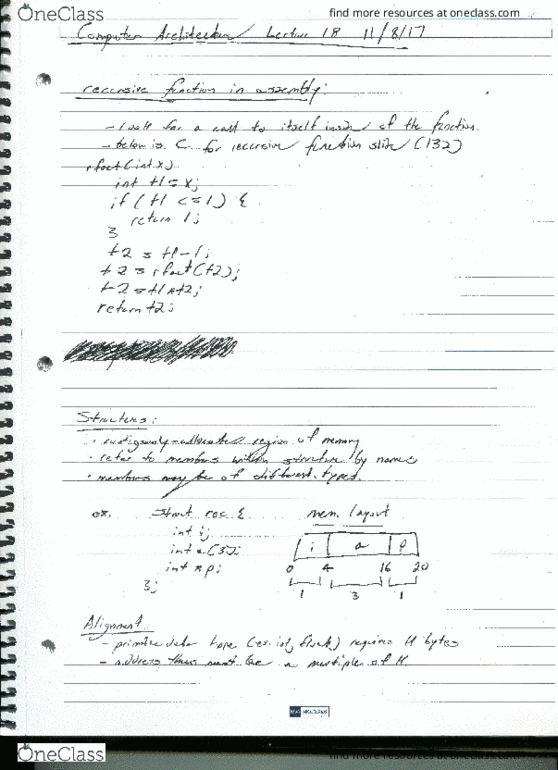 OneClass
find more resources at oneclass.com
Computer Architecture Lecture 18 11/8/17
recursive function in assembly:
- look for a call to itself inside of the function.
- below is C for recursive function slide (132)
rfact(int x)
int t1 = x;
if (t1 <= 1) {
return 1;
}
t2 = t1-1;
t2 = rfact(t2);
t2 = t1*t2;
return t2;
Structures:
· contiguously-allocated region of memory
· refer to members within structure by names
· members may be of different types.
ex. struct rec {
int i;
int a[3];
int *p;
};
mem. layout
i a p
0 4 16 20
1 3 1
Alignment
- primitive data type (ex. int, float) requires K bytes
- address thus must be a multiple of K
OneClass
find more resources at oneclass.com